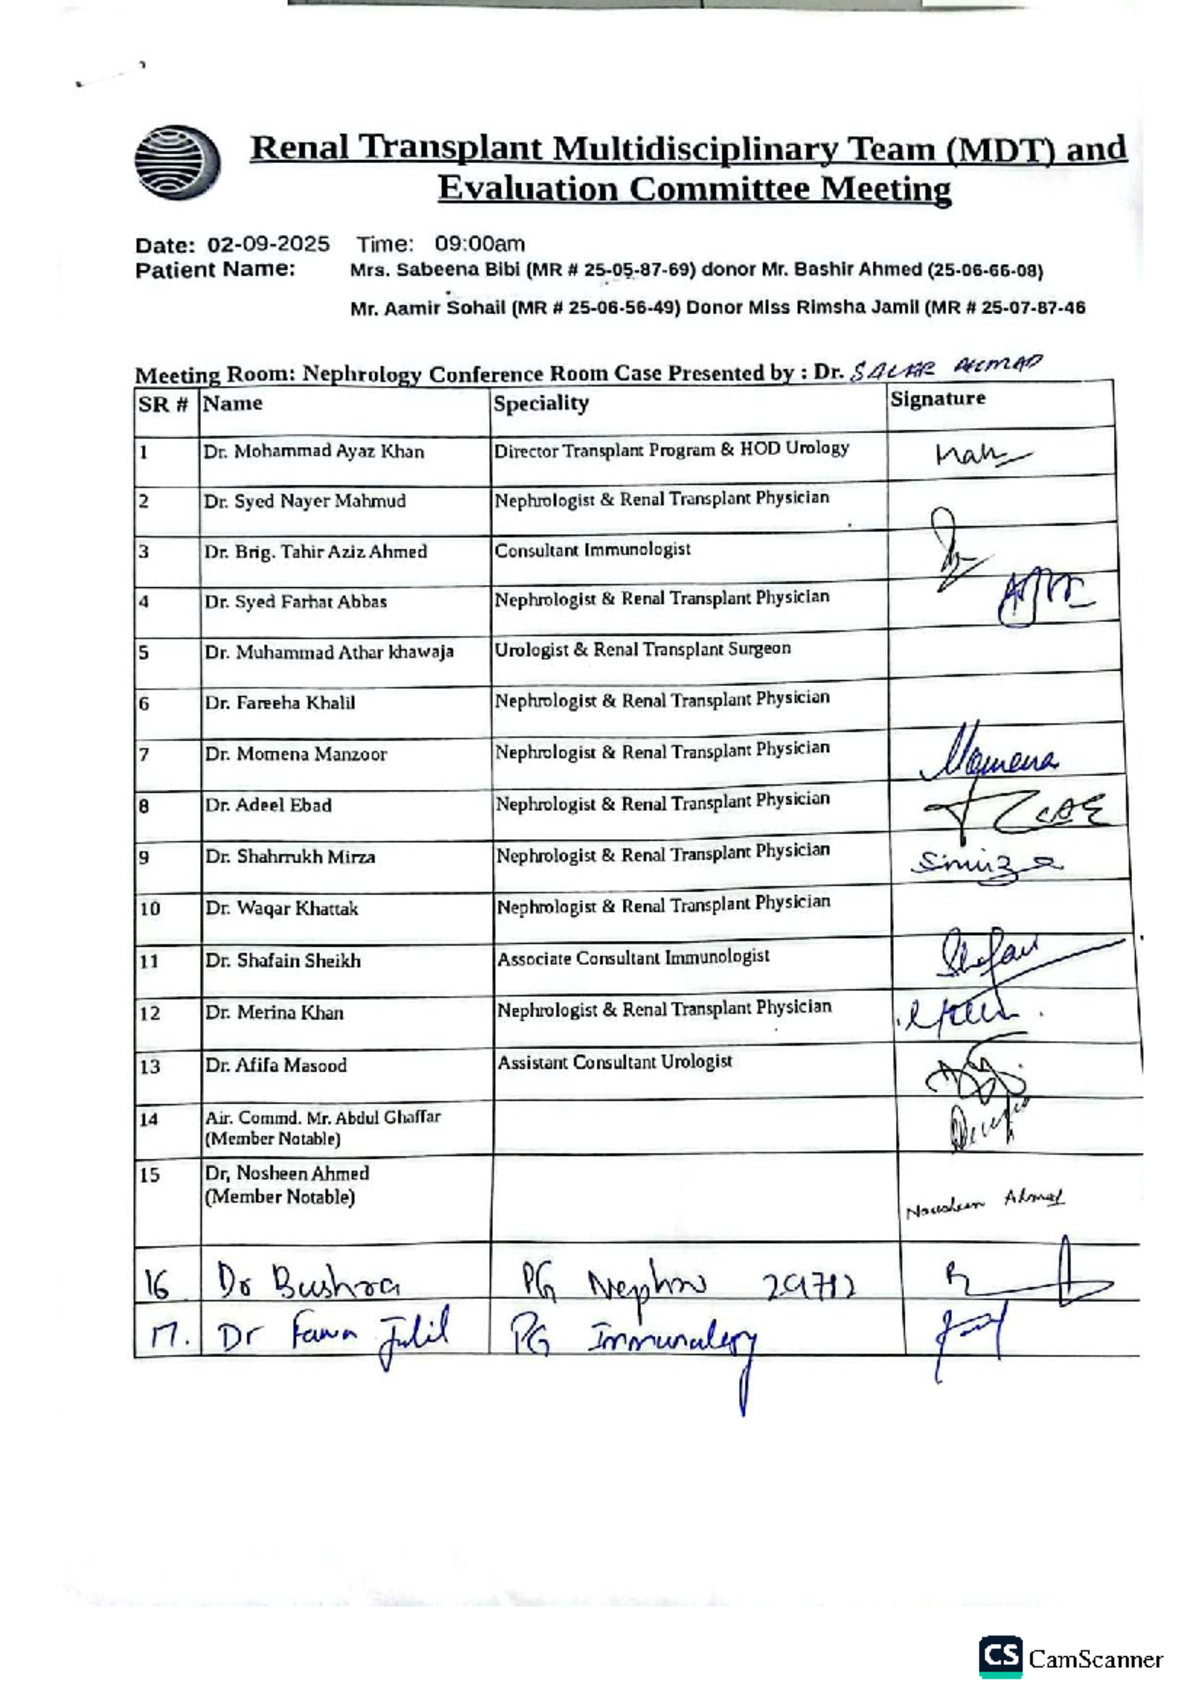 Renal Transplant Multidisciplinary Team (MDT) and
Evaluation Committee Meeting
Date: 02-09-2025 Time: 09:00am
Patient Name: Mrs. Sabeena Bibi (MR # 25-05-87-69) donor Mr. Bashir Ahmed (25-06-66-08)
Mr. Aamir Sohail (MR # 25-06-56-49) Donor Miss Rimsha Jamil (MR # 25-07-87-46
Meeting Room: Nephrology Conference Room Case Presented by : Dr. AHMAD
SR # Name Speciality Signature
1 Dr. Mohammad Ayaz Khan Director Transplant Program & HOD Urology
2 Dr. Syed Nayer Mahmud Nephrologist & Renal Transplant Physician
3 Dr. Brig. Tahir Aziz Ahmed Consultant Immunologist
4 Dr. Syed Farhat Abbas Nephrologist & Renal Transplant Physician
5 Dr. Muhammad Athar khawaja Urologist & Renal Transplant Surgeon
6 Dr. Fareeha Khalil Nephrologist & Renal Transplant Physician
7 Dr. Momena Manzoor Nephrologist & Renal Transplant Physician Momena
8 Dr. Adeel Ebad Nephrologist & Renal Transplant Physician
9 Dr. Shahrrukh Mirza Nephrologist & Renal Transplant Physician
10 Dr. Waqar Khattak Nephrologist & Renal Transplant Physician
11 Dr. Shafain Sheikh Associate Consultant Immunologist
12 Dr. Merina Khan Nephrologist & Renal Transplant Physician
13 Dr. Afifa Masood Assistant Consultant Urologist
14 Air. Commd. Mr. Abdul Ghaffar
(Member Notable)
15 Dr, Nosheen Ahmed
(Member Notable) Nousheen Ahmed
16 Dr Bushra PG Nephro 29712
17. Dr PG Immunology
CS CamScanner